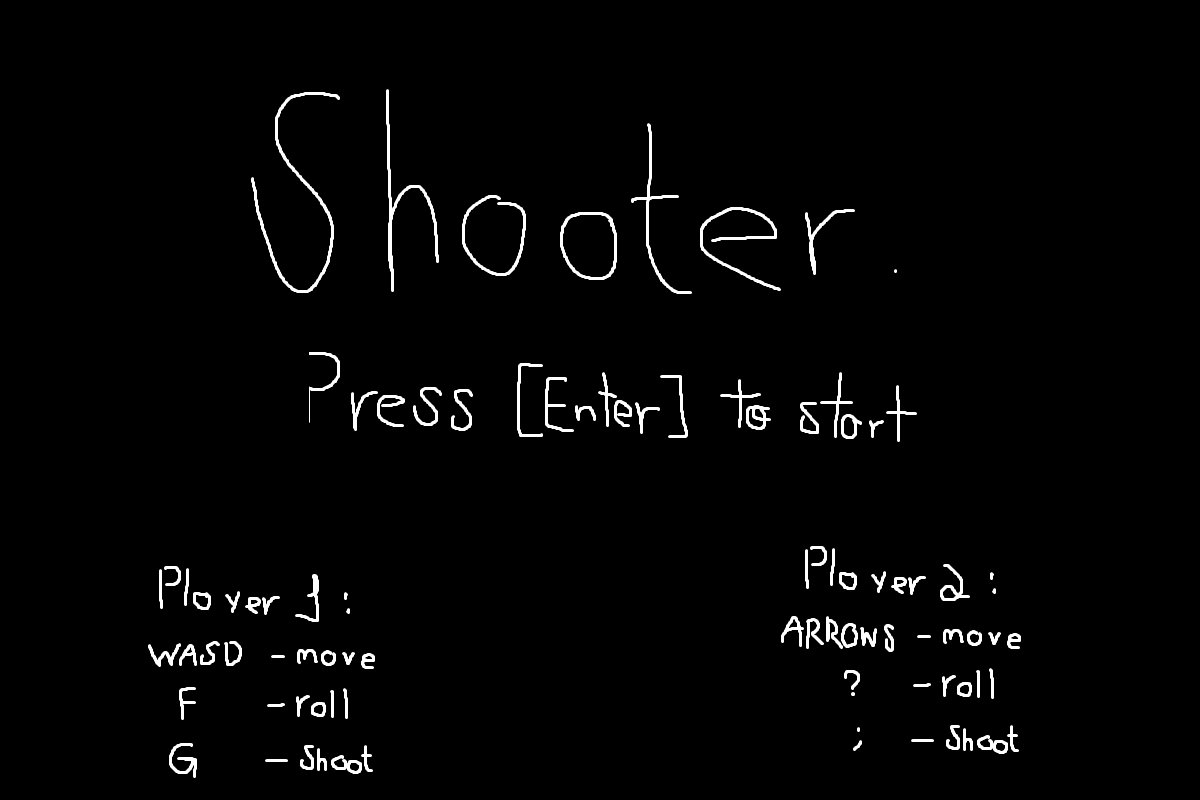 Shooter.
Press [Enter] to start
Player 1:
WASD - move
F - roll
G - Shoot
Player 2:
ARROWS - move
? - roll
; - Shoot